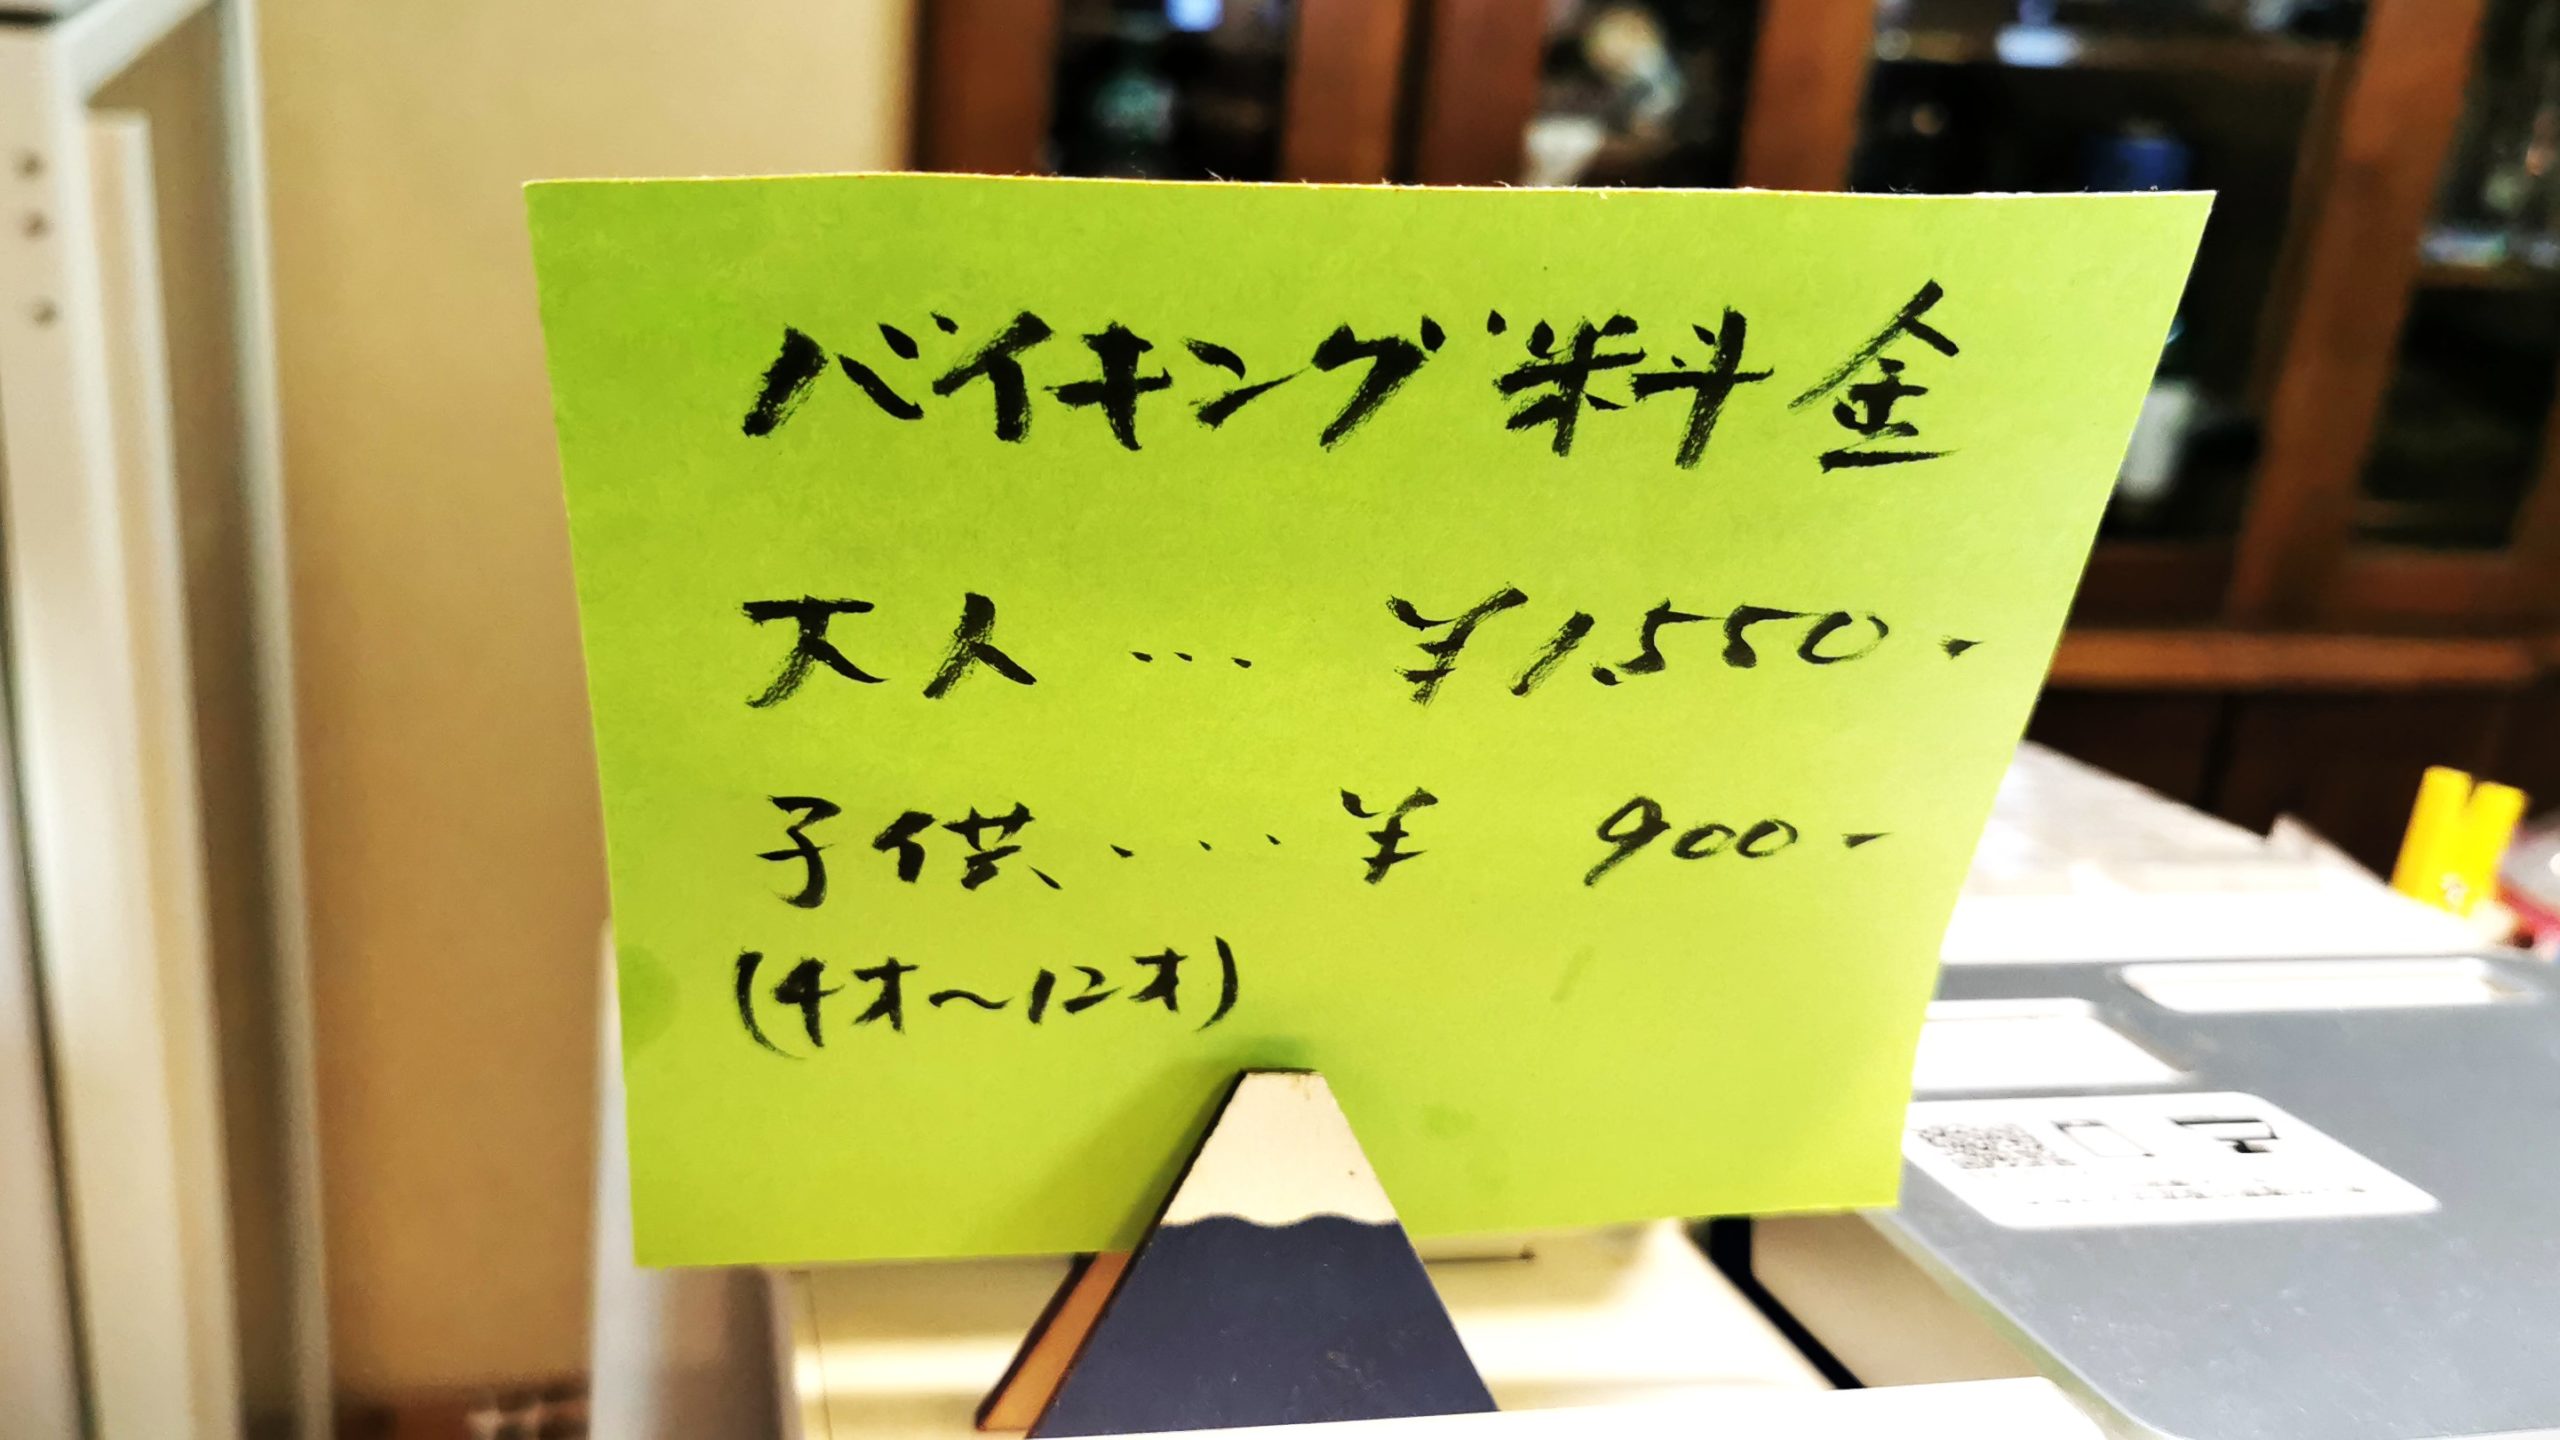 バイキング料金
大人… ¥1,550-
子供‥‥¥ 900-
(4才〜12才)